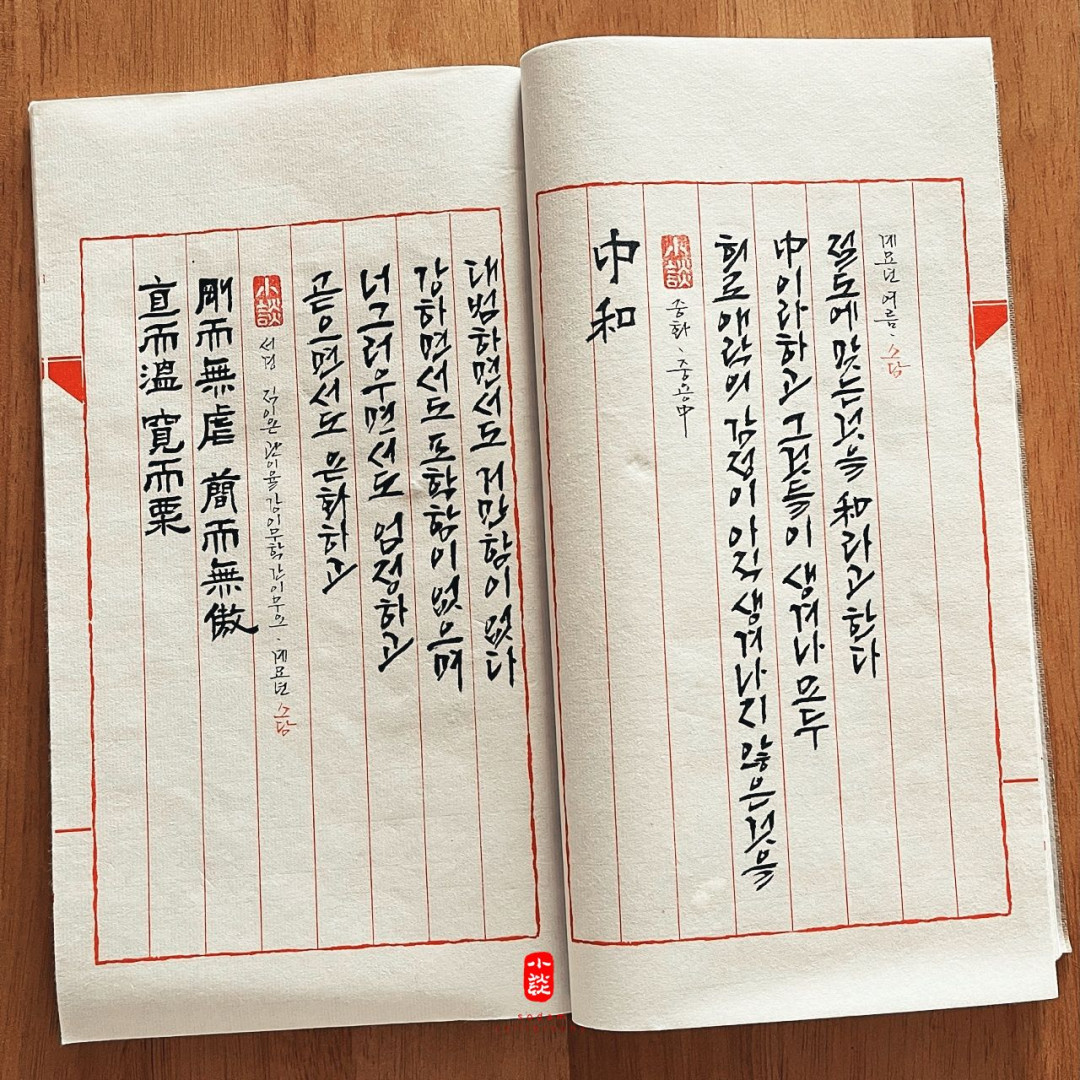 直而溫 寬而栗
剛而無虐 簡而無傲
小談
서경 직이온 관이율 강이무학 간이무오. 계묘년 소담
곧으면서도 온화하고
너그러우면서도 엄정하고
강하면서도 포학함이 없으며
대범하면서도 거만함이 없다
中和
小談
중화、중용中
희로애락의 감정이 아직 생겨나지 않은것을
中이라하고 그것들이 생겨나 모두
절도에 맞는것을 和라고 한다
계묘년 여름. 소담
小談